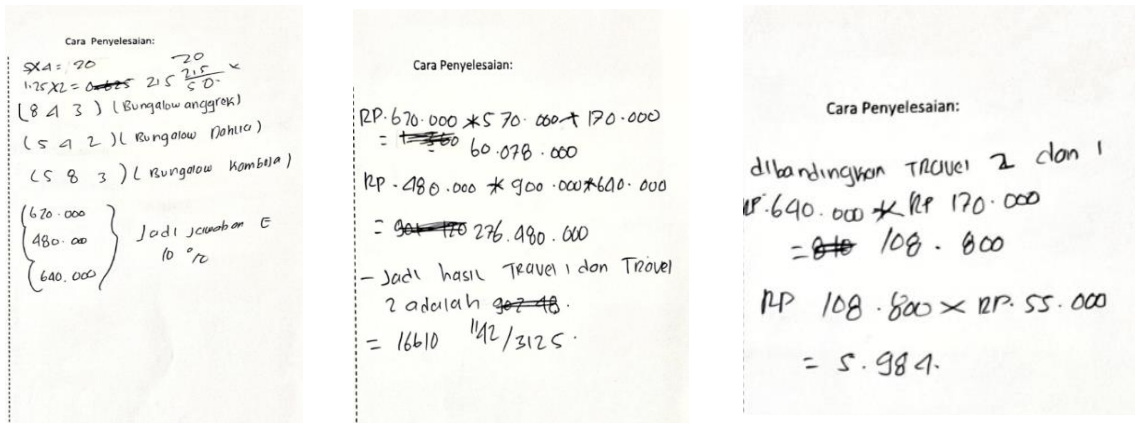 Cara Penyelesaian:
5x4 = 20
1.25x2 = 2,5
20
2,5 x
50.
(8 4 3) (Bungalow anggrek)
(5 4 2) (Bungalow Dahlia)
(5 8 3) (Bungalow Kamboja)
620.000
480.000
640.000
Jadi jawaban E
10 %
Cara Penyelesaian:
RP. 620.000 * 570.000 + 170.000
= 60.078.000
RP. 480.000 * 900.000 * 640.000
= 276.480.000
- Jadi hasil Travel 1 dan Travel
2 adalah
= 16610 1142/3125.
Cara Penyelesaian:
dibandingkan TRavel 2 dan 1
RP. 640.000 * RP 170.000
= 108.800
RP 108.800 x RP. 55.000
= 5.984.